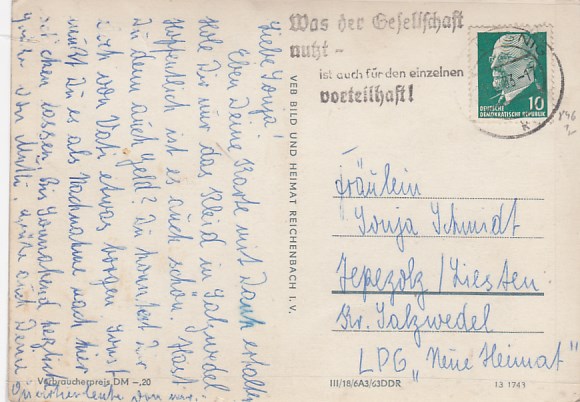 Was der Gesellschaft
nutzt -
ist auch für den einzelnen
vorteilhaft!
DEUTSCHE
DEMOKRATISCHE REPUBLIK
10
Liebe Sonja!
Eben Deine Karte mit Dank erhalten
Hole Dir nur das Kleid in Salzwedel
Hoffentlich ist es auch schön. Hast
Du denn auch Geld? Du könntest Dir
doch von Vati etwas borgen. Sonst
mußt Du es als Nachnahme nach hier
schicken lassen. Bis Sonnabend herzlich
von Mutti, Deine
VEB BILD UND HEIMAT REICHENBACH I. V.
Fräulein
Sonja Schmidt
Jeperolz/Liesten
Kr. Salzwedel
LPG „Neue Heimat"
Verbraucherpreis DM -,20
III/18/6A3/63DDR
13 1743